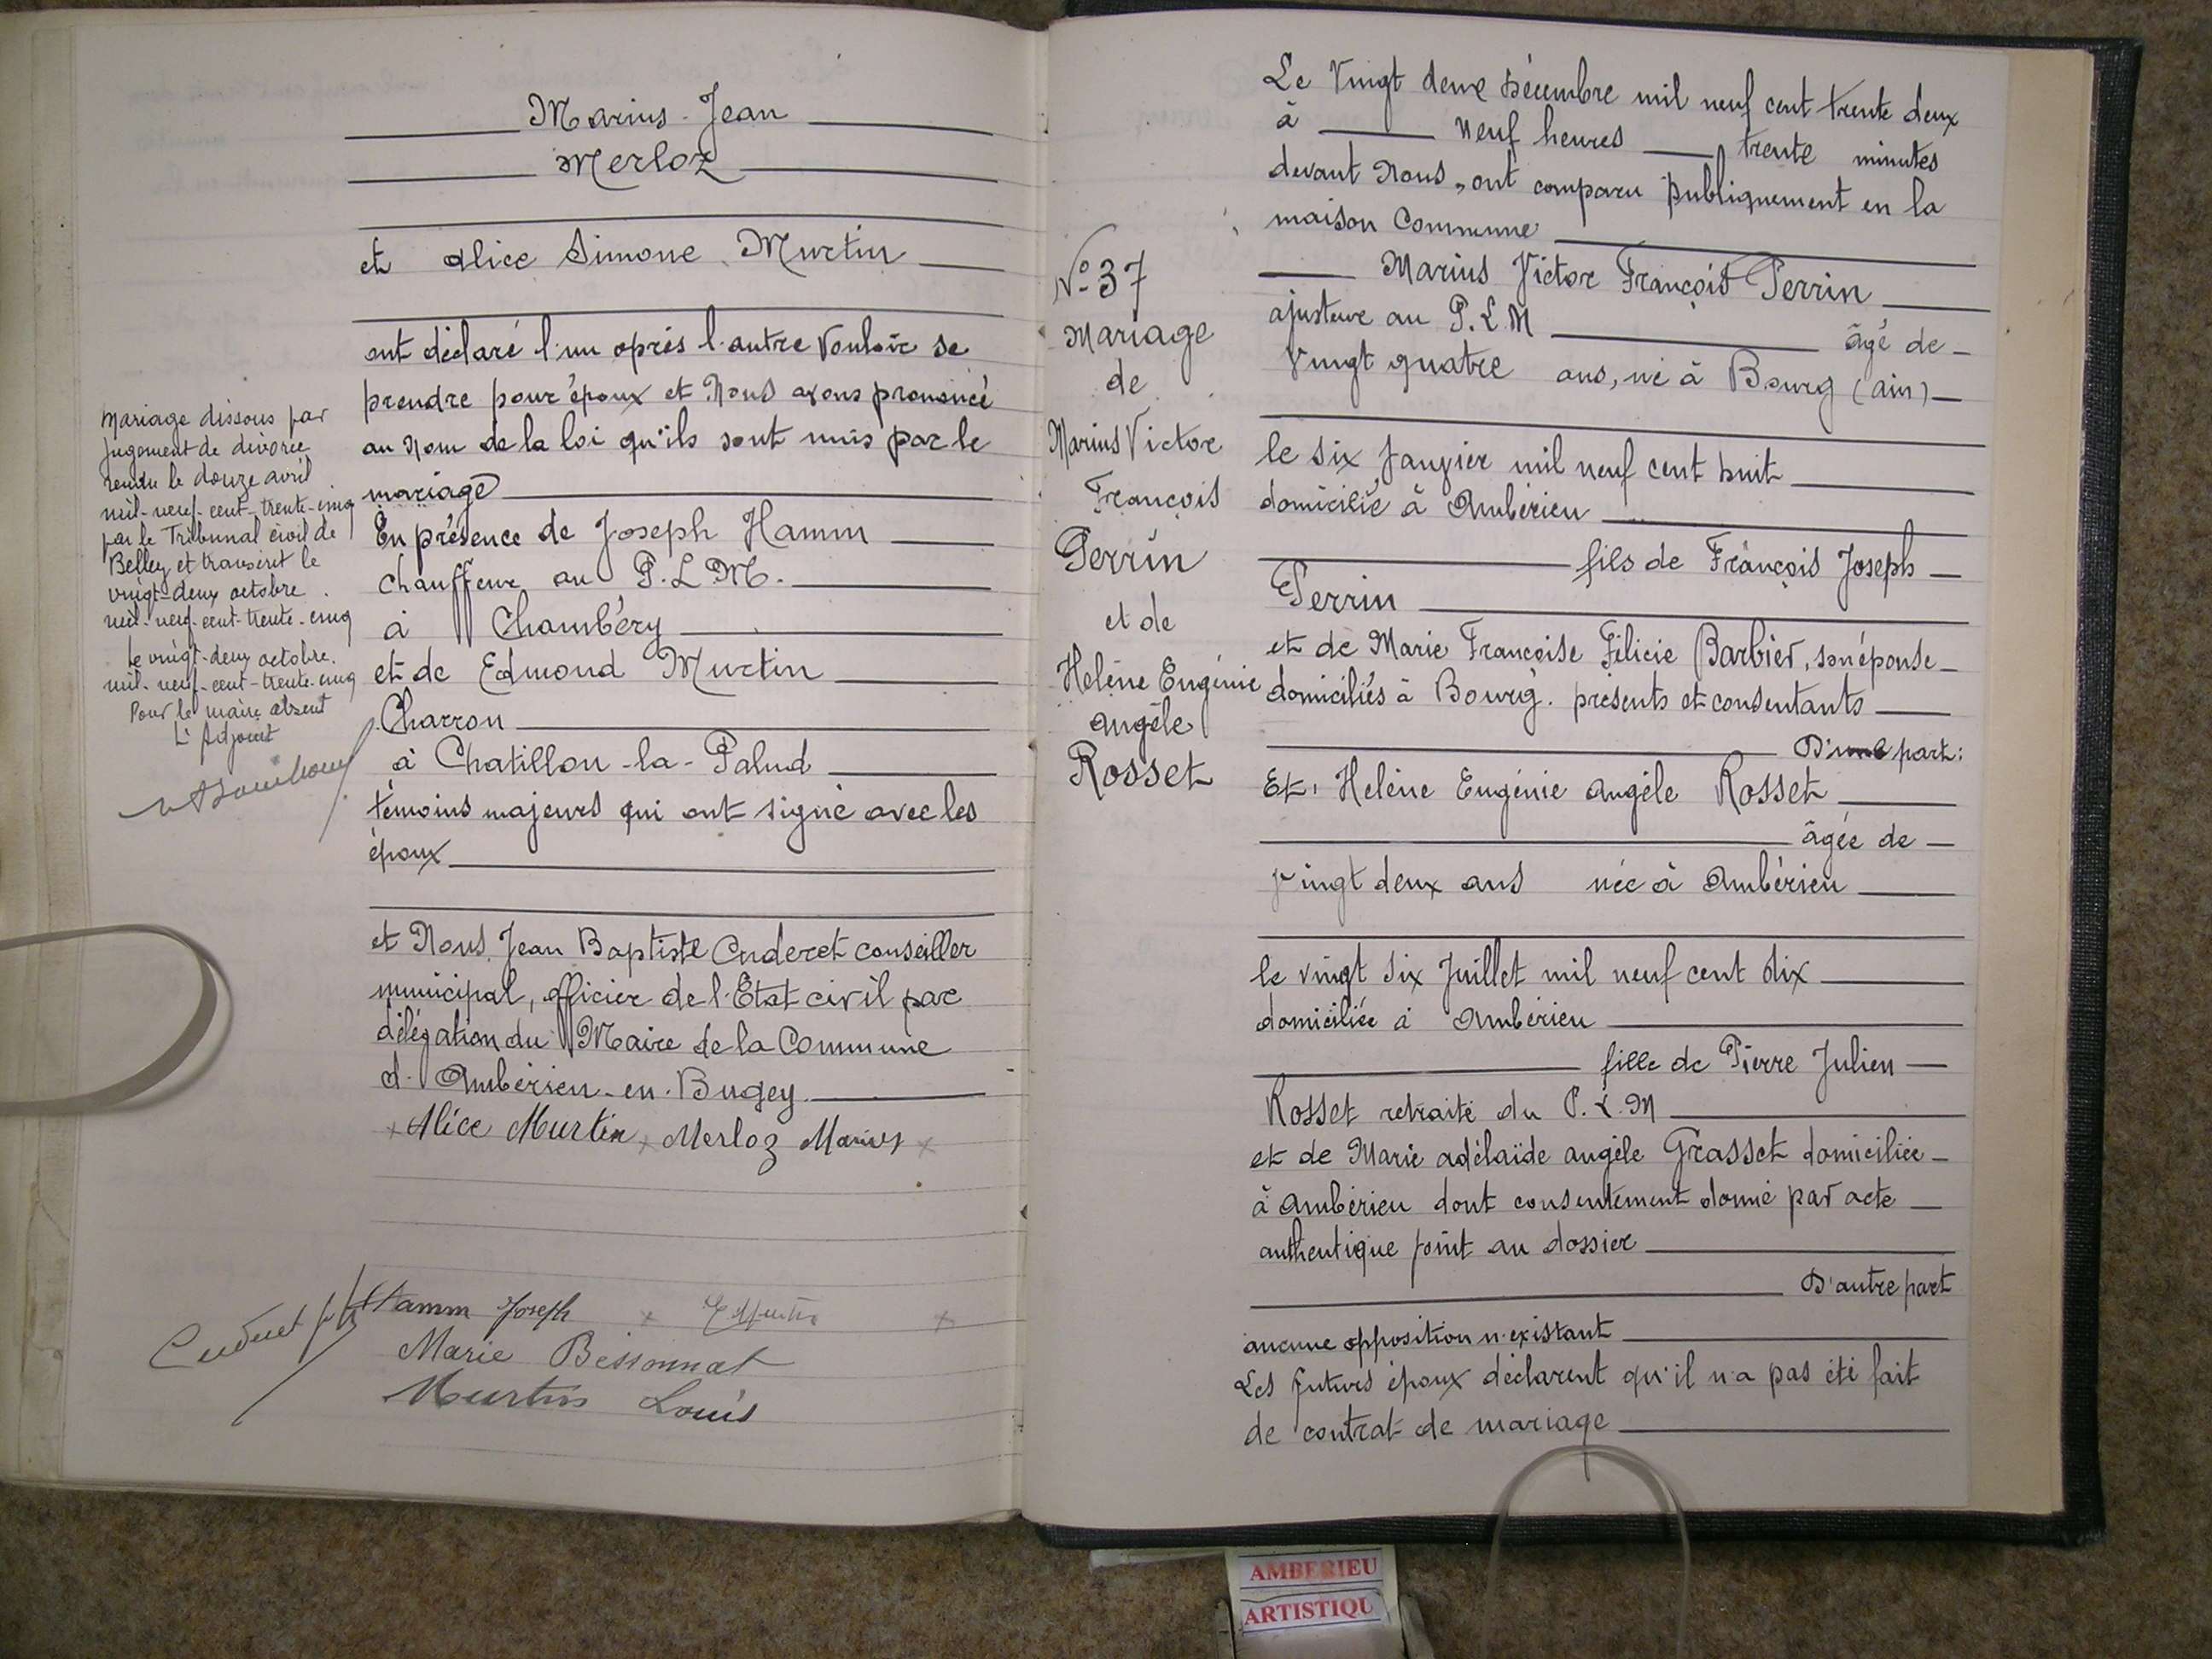 Marius Jean
Merloz
et Alice Simone Murtin
ont déclaré l'un après l'autre vouloir se
prendre pour époux et Nous avons prononcé
au Nom de la loi qu'ils sont unis par le
mariage
En présence de Joseph Hamm
chauffeur au P.L.M.
à Chambéry
et de Edmond Murtin
Charron
à Chatillon-la-Palud
témoins majeurs qui ont signé avec les
époux
et Nous, Jean Baptiste Cuderet conseiller
municipal, officier de l'Etat civil par
délégation du Maire de la Commune
d'Ambérieu-en-Bugey
Alice Murtin Merloz Marius
Cuderet
Hamm Joseph E Murtin
Marie Bessonnat
Murtin Louis
Mariage dissous par
Jugement de divorce
rendu le douze avril
mil-neuf-cent-trente-cinq
par le Tribunal civil de
Belley et transcrit le
vingt-deux octobre
mil-neuf-cent-trente-cinq
Le vingt-deux octobre
mil-neuf-cent-trente-cinq
Pour le maire absent
L'Adjoint
N° 37
Mariage
de
Marius Victor
François
Perrin
et de
Helène Eugénie
Angèle
Rosset
Le Vingt deux Décembre mil neuf cent trente deux
à neuf heures trente minutes
devant Nous, ont comparu publiquement en la
maison Commune
Marius Victor François Perrin
ajusteur au P.L.M âgé de
Vingt quatre ans, né à Bourg (ain)
le six Janvier mil neuf cent huit
domicilié à Ambérieu
fils de François Joseph
Perrin
et de Marie Françoise Félicie Barbier, son épouse
domiciliés à Bourg. présents et consentants
D'une part:
Et, Helène Eugénie Angèle Rosset
âgée de
vingt deux ans née à Ambérieu
le vingt six Juillet mil neuf cent dix
domiciliée à Ambérieu
fille de Pierre Julien
Rosset retraité du P.L.M
et de Marie adélaïde angèle Grasset domiciliée
à Ambérieu dont consentement donné par acte
authentique joint au dossier
D'autre part
aucune opposition n'existant
Les futurs époux déclarent qu'il n'a pas été fait
de contrat de mariage
AMBERIEU
ARTISTIQU